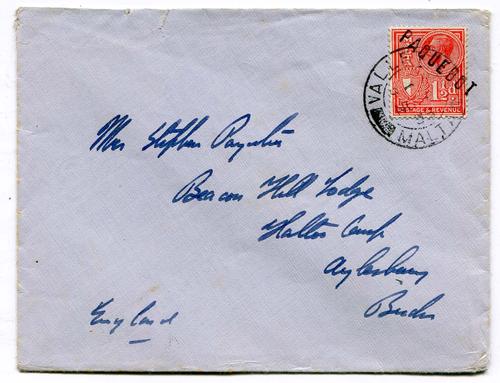 PAQUEBOT
VALLE
MALTA
1½d
POSTAGE & REVENUE
Mrs Stephen Paynter
Beacon Hill Lodge
Halton Camp
Aylesbury
Bucks
England